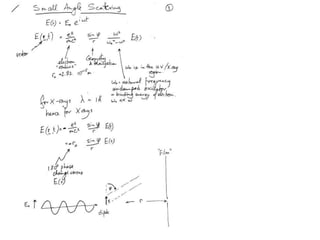 Small Angle Scattering ①
E(t) = E₀ e^(-iωt)
E(r,t) = e²/mc² sin ψ/r ω²/(ω₀²-ω²) E(t)
vector
electron "radius"
Geometry
r₀ = 2.82 10⁻¹⁵ m
ω₀ is in the UV/X-ray
region
ω₀ = natural frequency
undamped oscillator,
= binding energy of electron
for X-rays λ = 1Å
hence for X-rays
E(r,t) = - e²/mc² sin ψ/r E(t)
= - r₀ sin ψ/r E(t)
180° phase
change versus
E(t)
"Film"
E₀
ψ
r